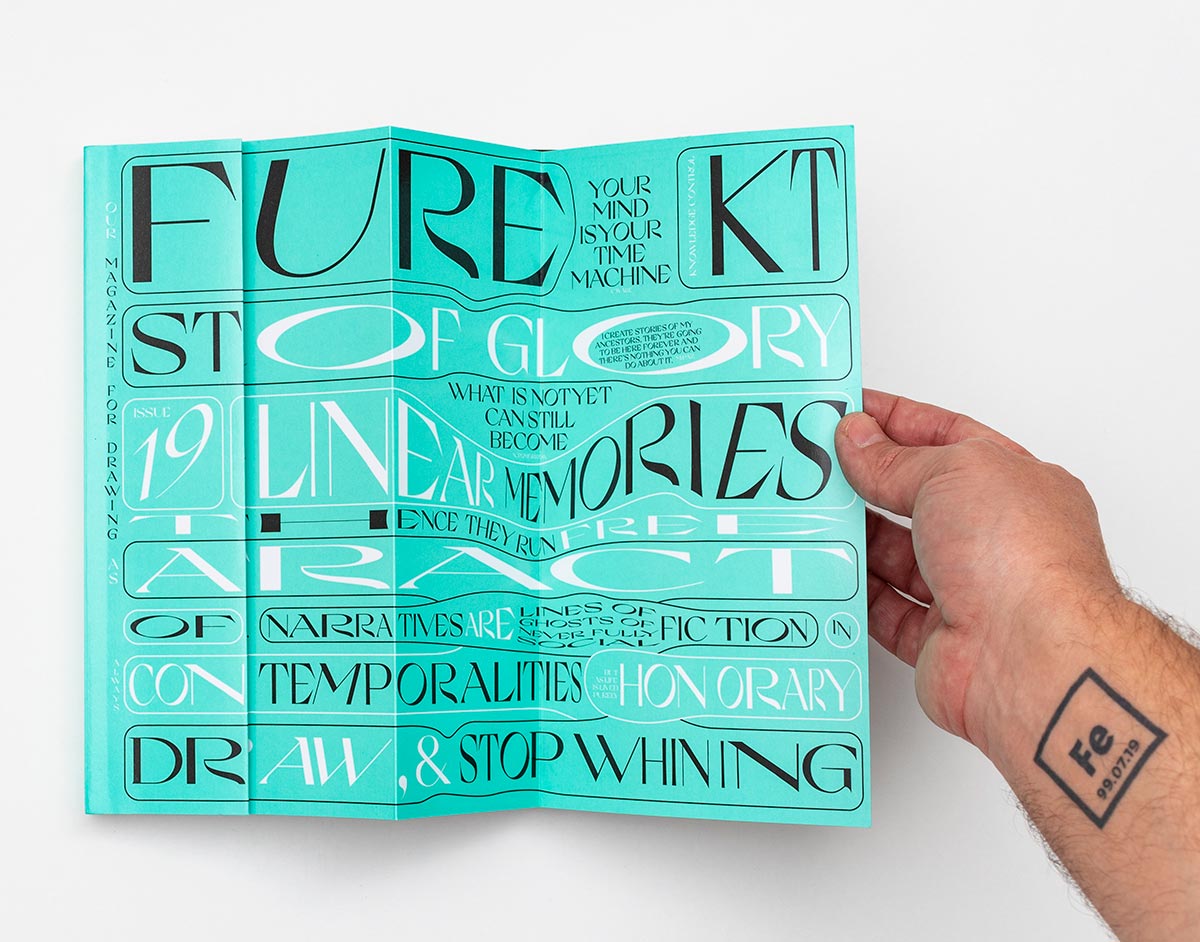 OUR MAGAZINE FOR DRAWING AS ALWAYS
FURE KT
YOUR
MIND
IS YOUR
TIME
MACHINE
KNOWLEDGE CONTROL
ST OF GLORY
I CREATE STORIES OF MY
ANCESTORS. THEY'RE GOING
TO BE HERE FOREVER AND
THERE'S NOTHING YOU CAN
DO ABOUT IT.
ISSUE
19
LINEAR MEMORIES
WHAT IS NOT YET
CAN STILL
BECOME
THENCE THEY RUN FREE
ARACT
OF NARRATIVES ARE
LINES OF
GHOSTS OF
NEVER FULLY
SOCIAL
FICTION IN
CON TEMPORALITIES
BUT
AS LIFE
IS LIVED
PURELY
HONORARY
DRAW, & STOP WHINING
Fe
99.07.19